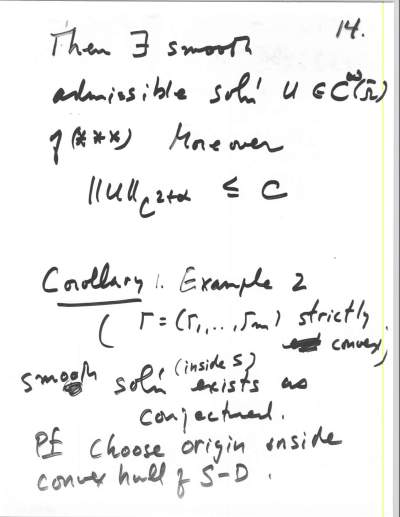 14.
Then ∃ smooth
admissible sol'n u ∈ C^∞(Ω̄)
of (***) Moreover
||u||_{C^{2+α}} ≤ C
Corollary 1. Example 2
( Γ = (Γ₁, .., Γₘ) strictly
convex)
smooth sol'n (inside S) exists as
conjectured.
Pf Choose origin inside
convex hull of S-D.